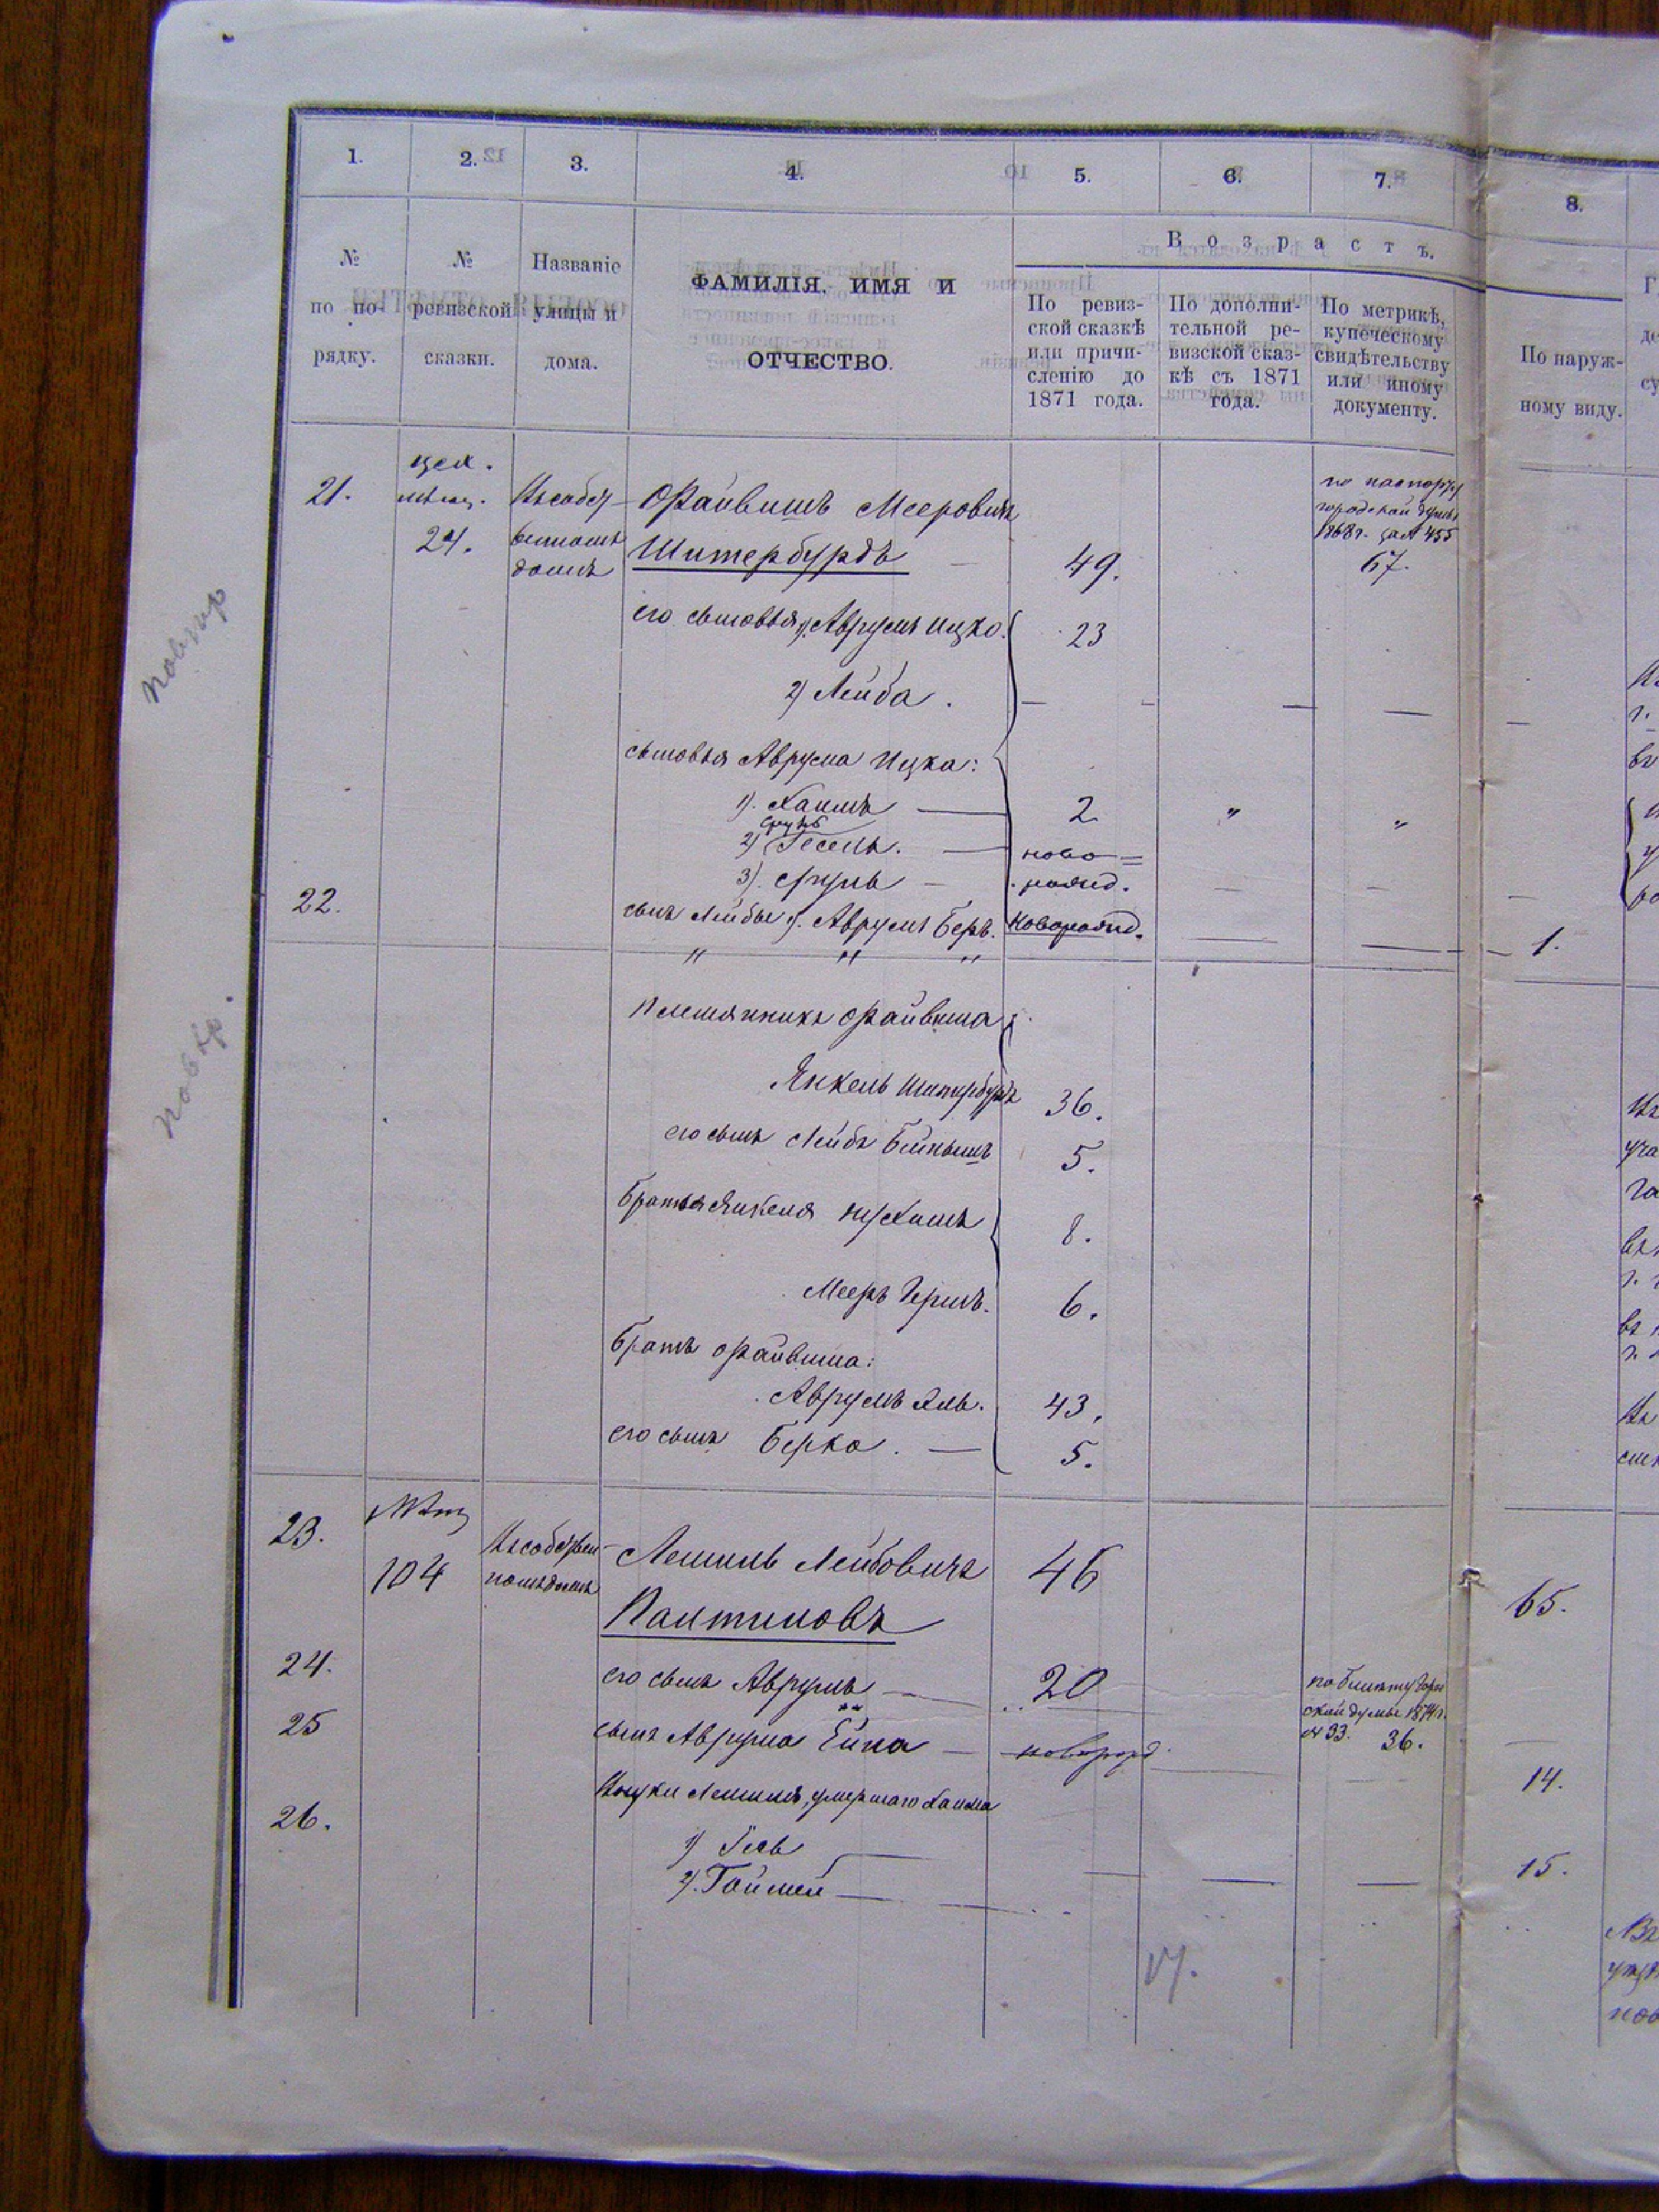 1. 2. 3. 4. 5. 6. 7. 8.
№ по порядку.
№ ревизской сказки.
Названіе улицы и дома.
ФАМИЛІЯ, ИМЯ И
ОТЧЕСТВО.
Возрастъ.
По ревиз-
ской сказкѣ
или причи-
сленію до
1871 года.
По дополни-
тельной ре-
визской сказ-
кѣ съ 1871
года.
По метрикѣ,
купеческому
свидѣтельству
или иному
документу.
По наруж-
ному виду.
21.
24.
Въ собст-
венномъ
домѣ
Файвишъ Мееровичъ
Шитербурдъ 49.
по паспорту
городской думы
1868 г. за № 455
67.
его сыновья, Аврумъ Ицко. 23
2) Лейба.
сыновья Аврума Ицка:
1). Хаимъ 2 " "
Сруль
2) Гесель. ново=
3). Сруль рожд.
22. сынъ Лейбы 1). Аврумъ Беръ. Новорожд. 1.
" " "
племянникъ Файвиша:
Янкель Шитербурдъ 36.
его сынъ Лейба Бейнышъ 5.
Братья Янкеля Нухимъ 8.
Мееръ Гершъ. 6.
Братъ Файвиша:
Аврумъ Эль. 43.
его сынъ Берко. 5.
23. Мѣщ 104
Въ собствен-
номъ домѣ
Лейбовичъ 46 65.
24. его сынъ Аврумъ 20
по билету Город
ской думы 1874 г.
№ 93. 36.
25 сынъ Аврума новорожд. 14.
Внуки умершаго Хаима
26. 1)
2). 15.
17.
повтр
повтр.